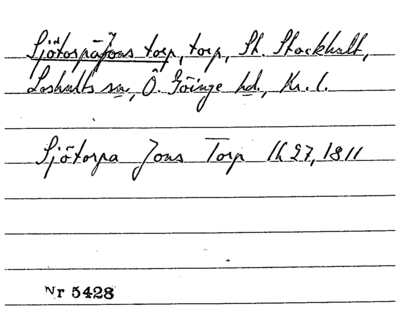 Sjötorpa Jons torp, torp, St. Stackhult,
Loshults sn, Ö. Göinge hd, Kr. l.
Sjötorpa Jons Torp lh 27, 1811
Nr 5428